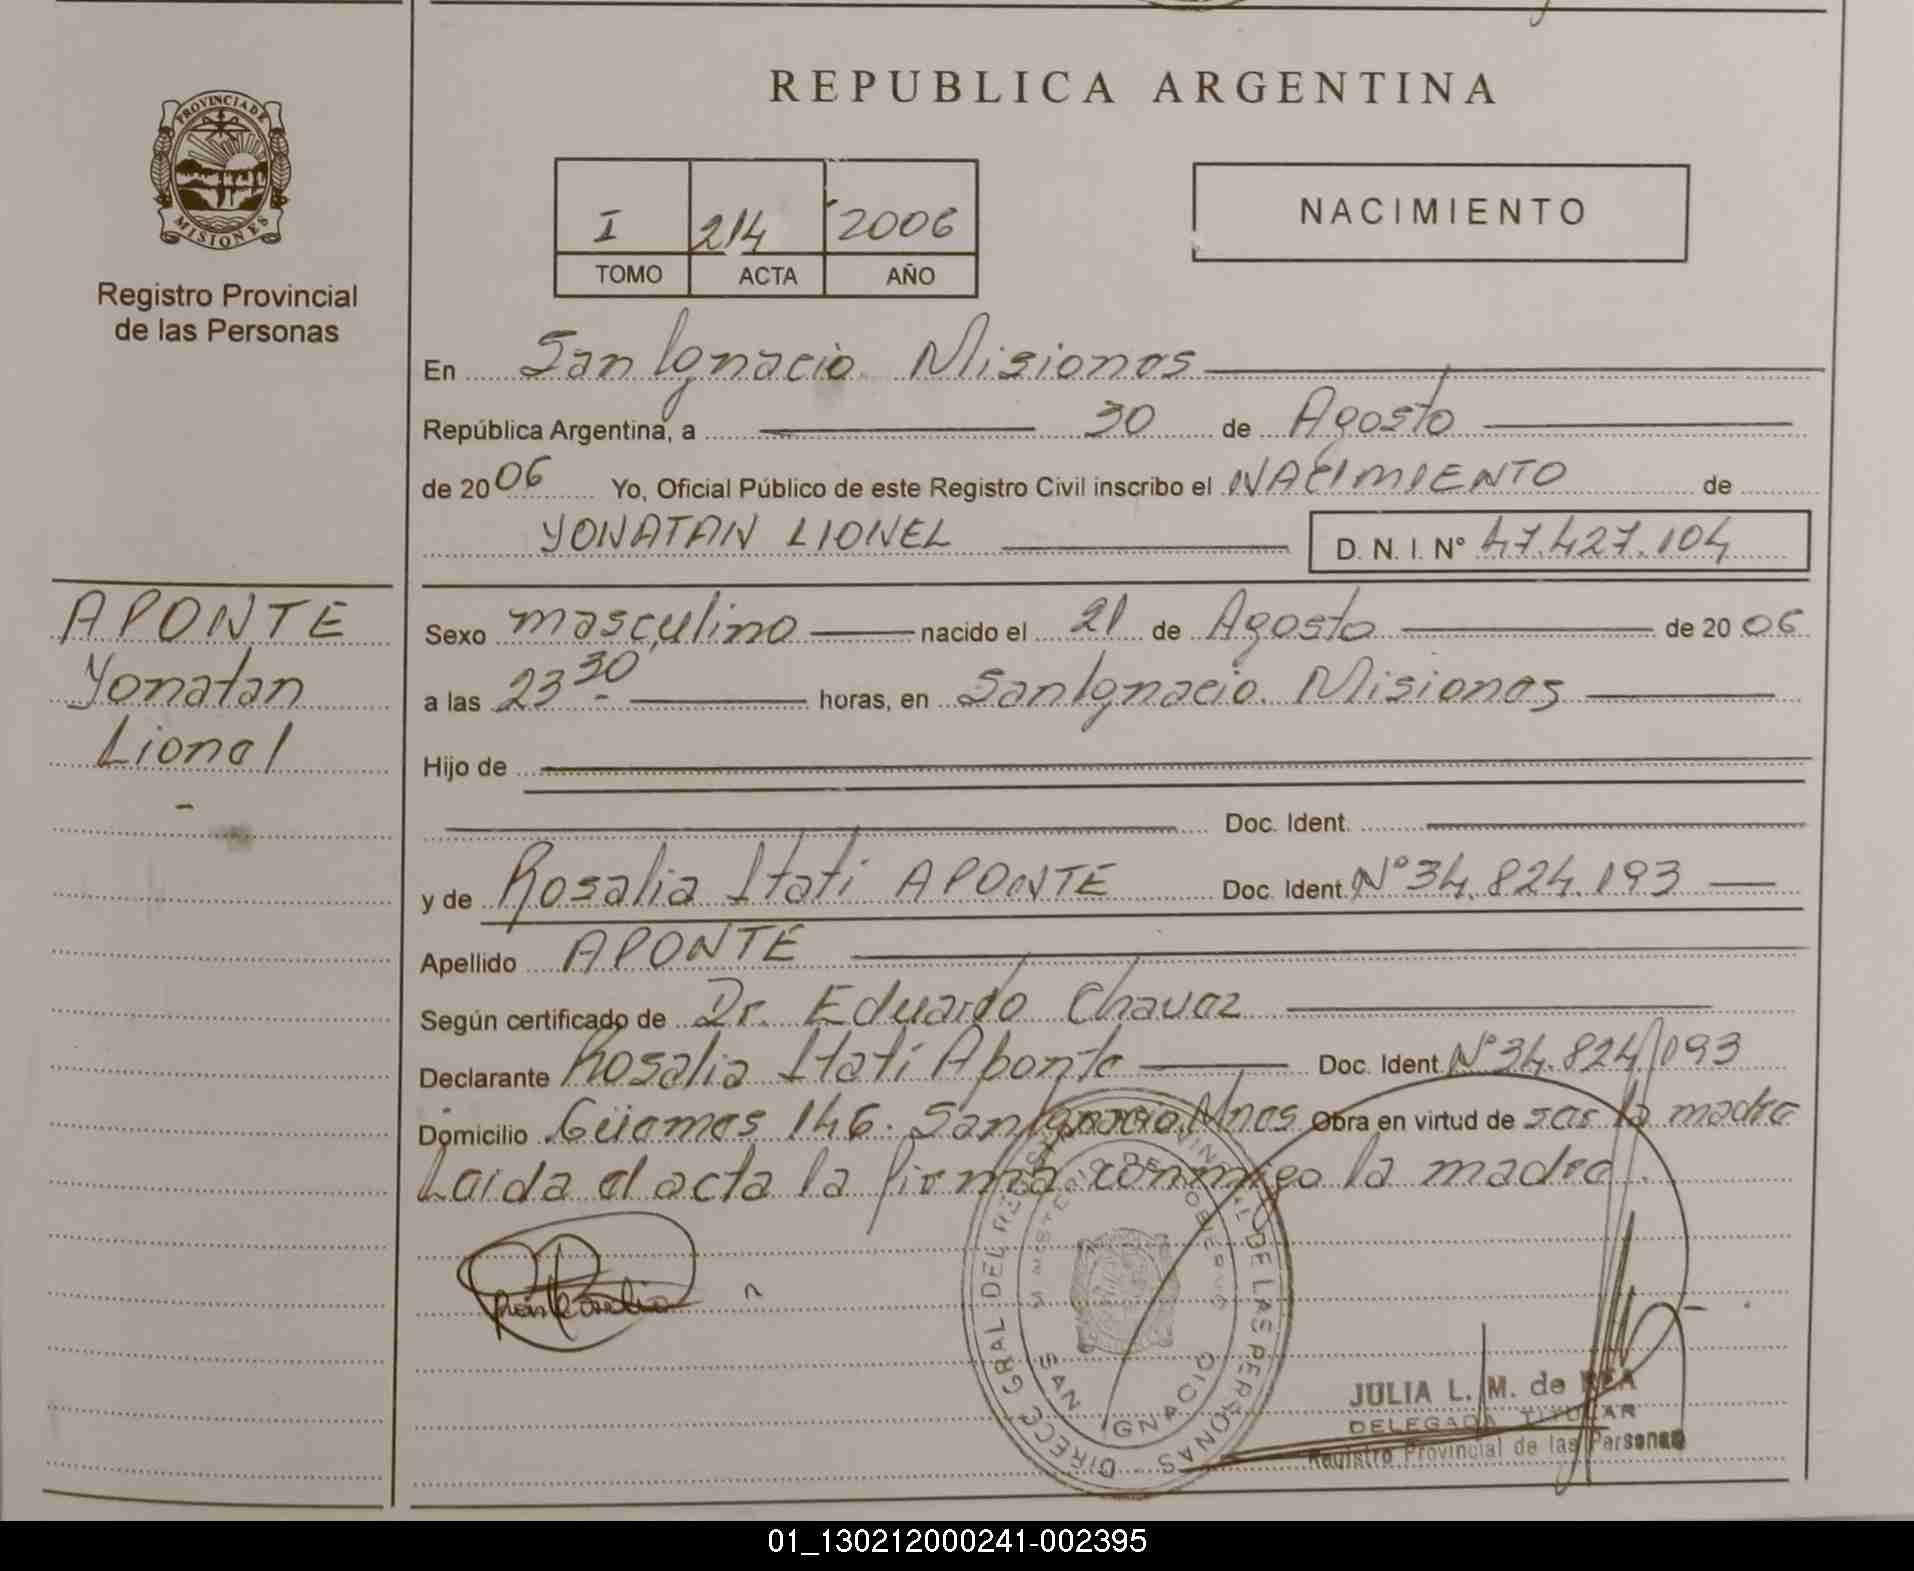 REPUBLICA ARGENTINA
PROVINCIA DE
MISIONES
Registro Provincial
de las Personas
I 214 2006
TOMO ACTA AÑO
NACIMIENTO
En San Ignacio Misiones
República Argentina, a 30 de Agosto
de 2006 Yo, Oficial Público de este Registro Civil inscribo el NACIMIENTO de
YONATAN LIONEL D. N. I. Nº 47.427.104
APONTE
Yonatan
Lionel
Sexo masculino nacido el 21 de Agosto de 2006
a las 23 30 horas, en San Ignacio. Misiones
Hijo de
Doc. Ident.
y de Rosalia Itati APONTE Doc. Ident. Nº 34.824.193
Apellido APONTE
Según certificado de Dr. Eduardo Chavez
Declarante Rosalia Itati Aponte Doc. Ident. Nº 34.824.193
Domicilio Güemes 146. San Ignacio. Mnes Obra en virtud de ser la madre
Leida el acta la firma conmigo la madre.
DIRECC GRAL DEL REG PROVINCIAL DE LAS PERSONAS
MINISTERIO DE GOBIERNO
SAN IGNACIO
JULIA L. M. de REA
DELEGADA TITULAR
Registro Provincial de las Personas
01_130212000241-002395